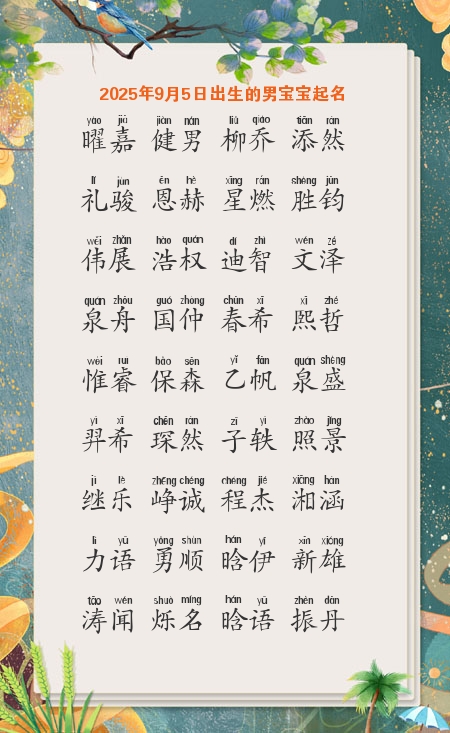 2025年9月5日出生的男宝宝起名
yào jiā jiàn nán liǔ qiáo tiān rán
曜嘉 健男 柳乔 添然
lǐ jùn ēn hè xīng rán shèng jūn
礼骏 恩赫 星燃 胜钧
wěi zhǎn hào quán dí zhì wén zé
伟展 浩权 迪智 文泽
quán zhōu guó zhòng chūn xī xī zhé
泉舟 国仲 春希 熙哲
wéi ruì bǎo sēn yǐ fān quán shèng
惟睿 保森 乙帆 泉盛
yì xī chēn rán zǐ yì zhào jǐng
羿希 琛然 子轶 照景
jì lè zhēng chéng chéng jié xiāng hán
继乐 峥诚 程杰 湘涵
lì yǔ yǒng shùn hán yī xīn xióng
力语 勇顺 晗伊 新雄
tāo wén shuò míng hán yǔ zhèn dān
涛闻 烁名 晗语 振丹